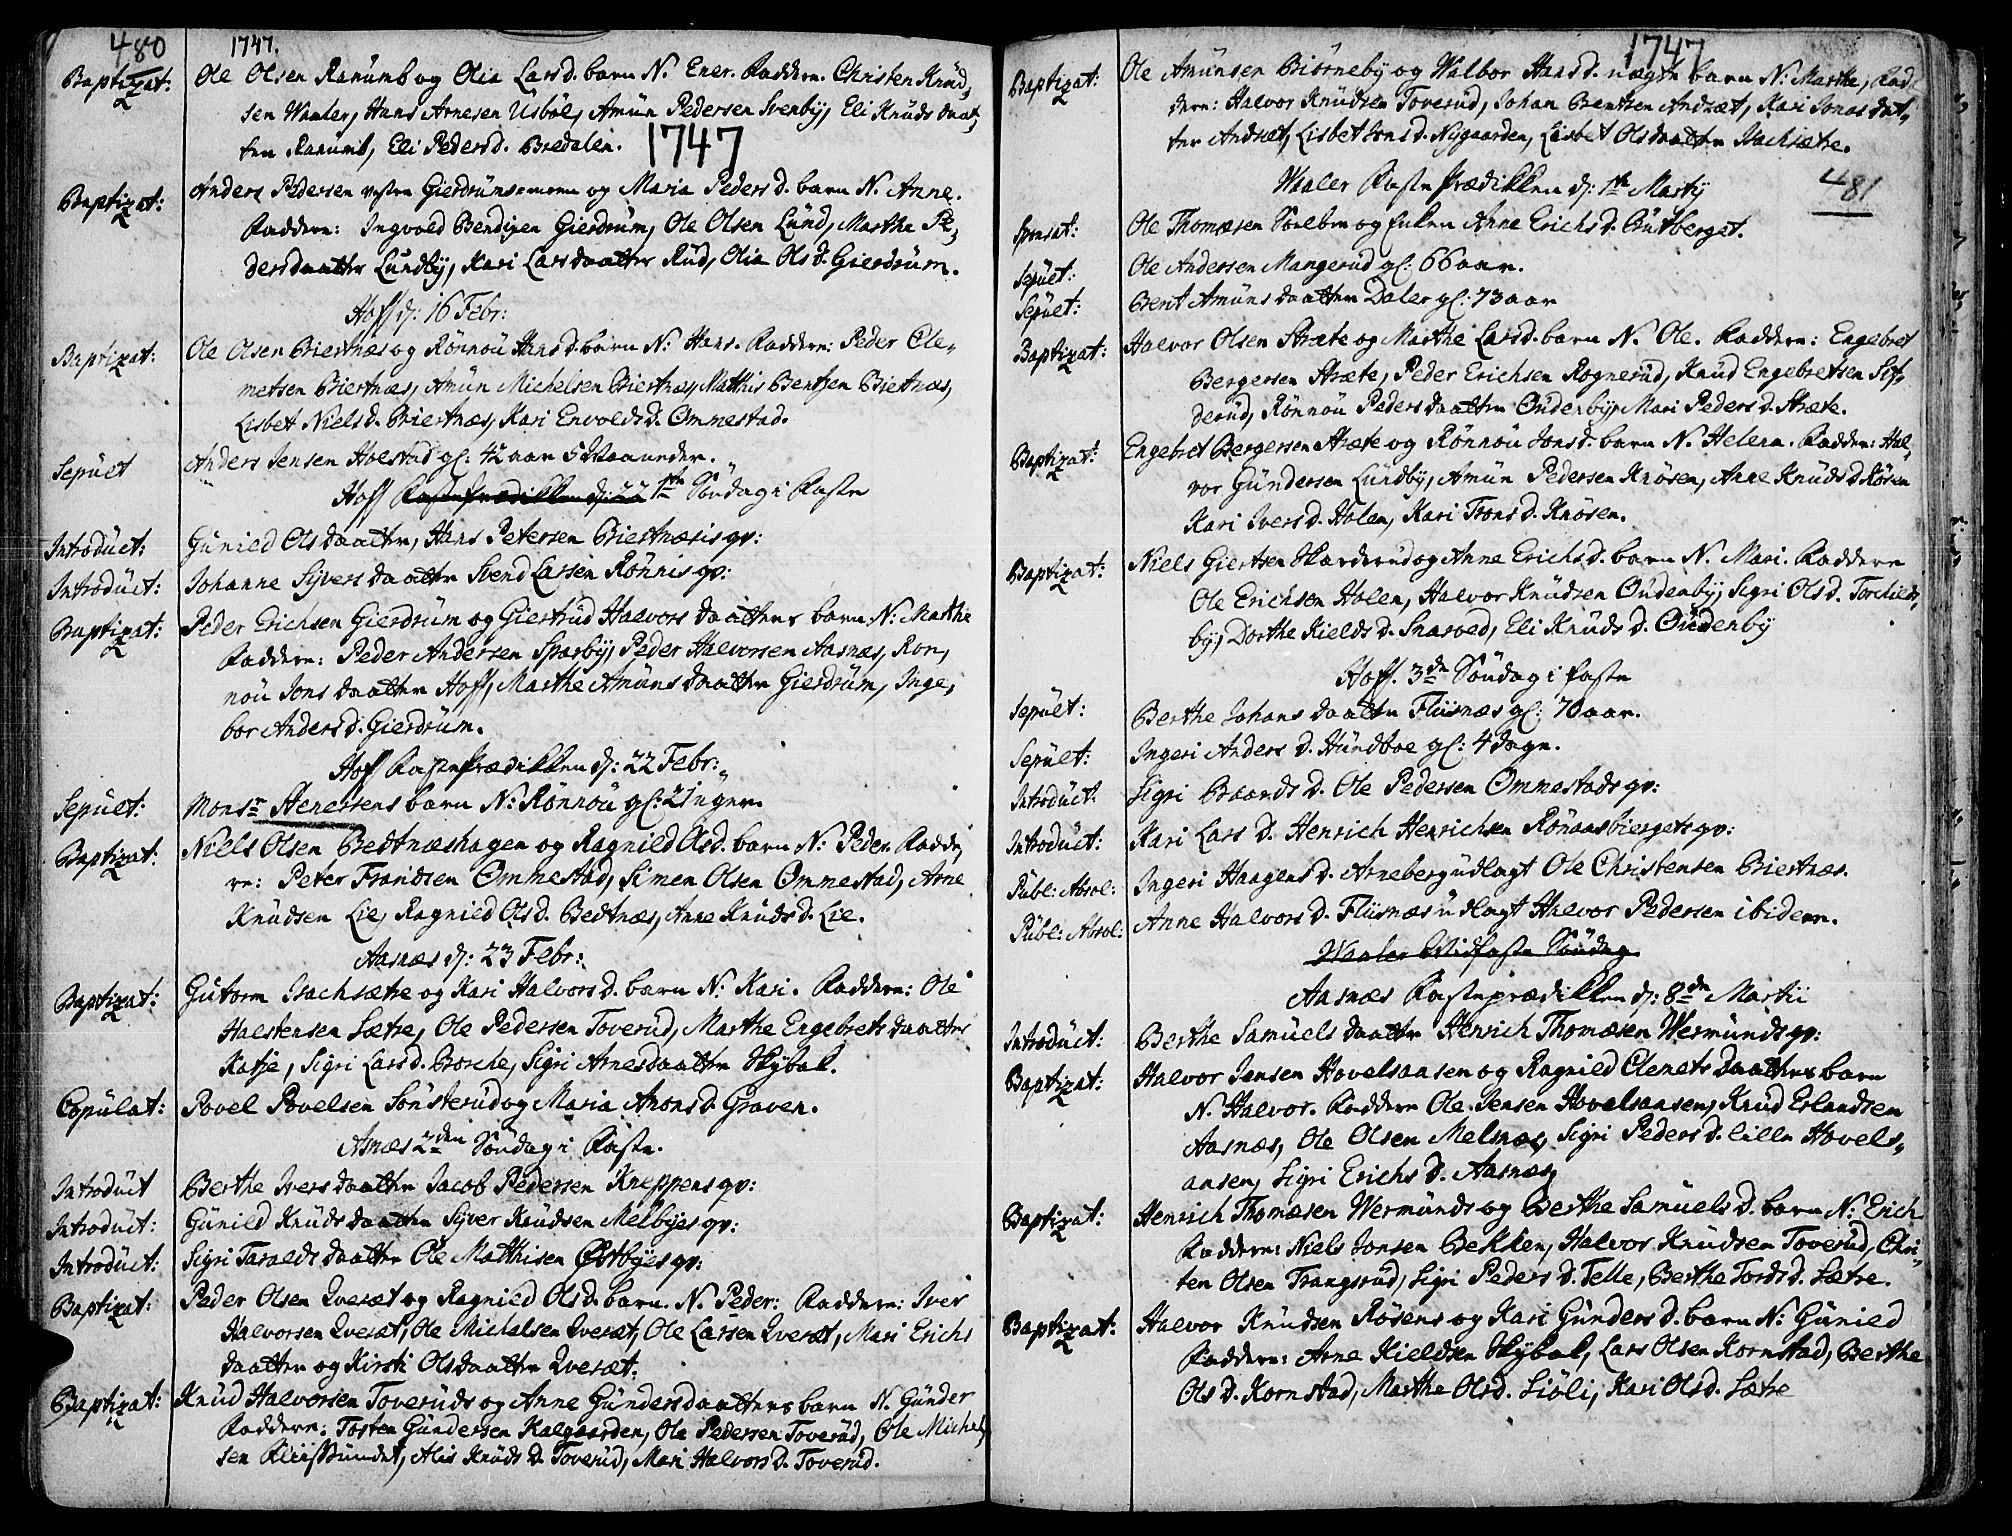 480
1747.
Baptizat: Ole Olsen Ranumb og Olia Larsd. barn N. Ener. Faddere. Christen Knud,
sen Waaler, Hans Arnesen Usböl, Amün Pedersen Svenby, Eli Knüds daat,
ter Ranumb, Eli Pedersd. Bredalen.
1747
Baptizat: Anders Pedersen vestre Gierdrüns og Maria Peders d. barn N. Anne.
Faddere: Ingvold Bendixen Gierdrüm, Ole Olsen Lünd, Marthe Pe,
dersdaatter Lündby, Kari Larsdaatter Rüd, Olia Ols d. Gierdrüm.
Hoff d: 16 Febr:
Baptizat: Ole Olsen Biertnæs og Rönnoü Hans d. barn N: Hans. Faddere: Peder Cle,
metsen Biertnæs, Amün Michelsen Biertnæs, Mathis Bentsen Biertnæs,
Lisbet Niels d. Biertnæs, Kari Envolds d. Ommestad.
Sepült Anders Jensen Holstad gl: 42 aar 5 Maaneder.
Hoff Fasteprædikken d: 22 1ste Söndag i Faste
Introdüct: Günild Olsdaatter, Hans Petersen Biertnæsis qv:
Introdüct: Johanne Syvers daatter Svend Larsen Rönnis qv:
Baptizat: Peder Erichsen Gierdrüm og Giertrüd Halvors daatters barn N: Marthe
Faddere: Peder Andersen Sparby, Peder Halvorsen Aasnæs, Ron,
noü Jons daatter Hoff, Marthe Amüns daatter Gierdrüm, Inge,
bor Anders d. Gierdrüm.
Hoff Fasteprædikken d: 22 Febr:
Sepült: Monsr Stenersens barn N: Rönnoü gl: 2 Uger.
Baptizat: Niels Olsen Bedtnæshagen og Ragnild Olsd. barn N: Peder. Fadde,
re: Peter Frandsen Ommestad, Simen Olsen Ommestad, Arne
Knüdsen Lie, Ragnild Ols d. Bedtnæs, Anne Knüds d. Lie.
Aasnæs d: 23 Febr:
Baptizat: Gutorm Isachsætre og Kari Halvors d. barn N: Kari. Faddere: Ole
Halstensen Sætre, Ole Pedersen Toverüd, Marthe Engebrets daatter
Katje, Sigri Lars d. Borche, Sigri Arnesdaatter Skybak.
Copülat: Povel Povelsen Sönsterüd og Maria Amons d. Graven.
Asnæs 2den Söndag i Faste.
Introdüct Berthe Ivers daatter Jacob Pedersen Kneppens qv:
Introdüct: Günild Knüds daatter Syver Knüdsen Melbyes qv:
Introdüct: Sigri Taralds daatter Ole Mathisen Østbyes qv:
Baptizat: Peder Olsen Qveræt og Ragnild Ols d. barn. N. Peder: Faddere: Iver
Halvorsen Qveræt, Ole Michelsen Qveræt, Ole Larsen Qveræt, Mari Erichs
daatter og Kirsti Olsdaatter Qveræt.
Baptizat: Knüd Halvorsen Toverüds og Anne Günders daatters barn N. Günder
Faddere: Tosten Gündersen Kalgaarden, Ole Pedersen Toverüd, Ole Michel,
sen Flisssundet, Alis Knüds d. Toverüd, Mari Halvors d. Toverüd.
1747
481
Baptizat: Ole Amünsen Biörneby og Walbor Hans d. ægte barn N: Marthe, Fad,
dere: Halvor Knüdsen Toverüd, Johan Bentsen Andræt, Kari Jonas dat,
ter Andræt, Lisbet Jens d. Nygaarden, Lisbet Olsdaatter Isachsætre.
Waaler Faste Prædikken d: 1te Marty
Sponsat: Ole Thomæsen Soelben og Enken Anne Erichs d. Butberget.
Sepült: Ole Andersen Mangerud gl: 66 aar.
Sepült: Berit Amüns daatter Daler gl: 73 aar
Baptizat: Halvor Olsen Stræte og Marthe Larsd. barn N. Ole. Faddere: Engebret
Bergersen Stræte, Peder Erichsen Rognerüd, Knud Engebretsen Sof,
derüd, Rönnoü Peders daatter Oüderby, Mari Peders d. Stræte.
Baptizat: Engebret Bergersen Stræte og Rönnoü Jons d. barn N. Helena. Faddere: Hal,
vor Gündersen Lündby, Amün Pedersen Knösen, Anne Knüds d. Kösen
Kari Ivers d. Holen, Kari Trons d. Knösen.
Baptizat: Niels Giertsen Skarderud og Anne Erichs d. barn N. Mari. Faddere
Ole Erichsen Holen, Halvor Knüdsen Oüdenby, Sigri Ols d. Torchilds,
by, Dorthe Kields d. Snarved, Eli Knüds d. Oüdenby
Hoff. 3de Söndag i faste
Sepült: Berthe Johans daatter Fliisnæs gl: 70 aar.
Sepült: Ingeri Anders d. Hündboe gl: 4 dage.
Introdüct: Sigri Baards d. Ole Pedersen Ommestads qv:
Introdüct: Kari Lars d. Henrich Henrichsen Rönaasbiergets qv:
Publ: Absol: Ingeri Haagens d. Arneberg udlagt Ole Christensen Briertnæs.
Publ: Absol: Anne Halvors d. Fliisnæs üdlagt Halvor Pedersen ibidem.
Waaler Midfaste Söndag
Aasnæs Fasteprædikken d: 8de Martii
Introdüct: Berthe Samüels daatter Henrich Thomæsen Wermünds qv:
Baptizat: Halvor Jensen Hovelsaasen og Ragnild Clemets daatters barn
N. Halvor. Faddere Ole Jensen Hovelsaasen, Knüd Erlandsen
Aasnæs, Ole Olsen Melsnæs, Sigri Peders d. lille Hovels,
aasen, Sigri Erichs d. Aasnæs,
Baptizat: Henrich Thomæsen Wermünds og Berthe Samüels d. barn N: Erich
Faddere: Niels Jonsen Bekken, Halvor Knüdsen Toverüd, Chri,
sten Olsen Trangsrüd, Sigri Peders d. Telle, Berthe Tords d. Sætre.
Baptizat: Halvor Knüdsen Rösens og Kari Günders d. barn N: Günild
Faddere: Arne Kieldsen Skybak, Lars Olsen Kornstad, Berthe
Ols d. Kornstad, Marthe Olsd. Liöli, Kari Ols d. Sætre